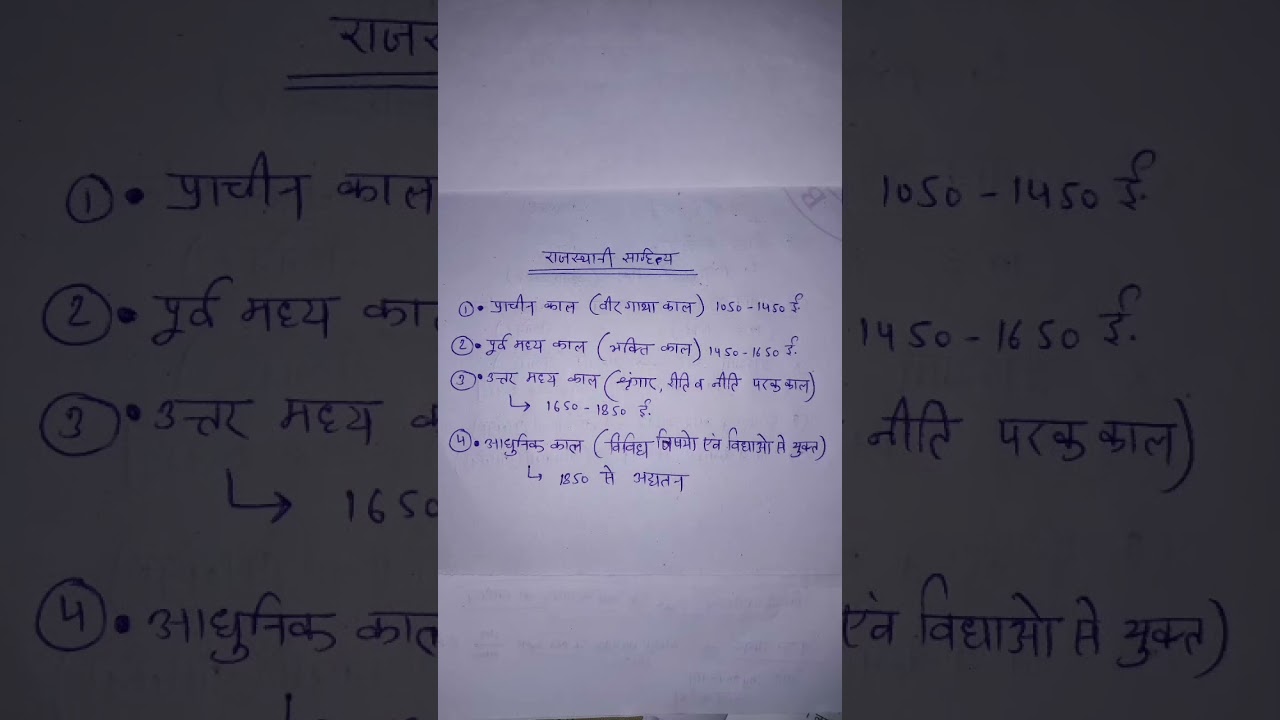 राजस्थानी साहित्य
① • प्राचीन काल (वीर गाथा काल) 1050 - 1450 ई.
② • पूर्व मध्य काल (भक्ति काल) 1450 - 1650 ई.
③ • उत्तर मध्य काल (श्रृंगार, रीति व नीति परक काल)
↳ 1650 - 1850 ई.
④ • आधुनिक काल (विविध विषयो एवं विद्याओ से युक्त)
↳ 1850 से अद्यतन